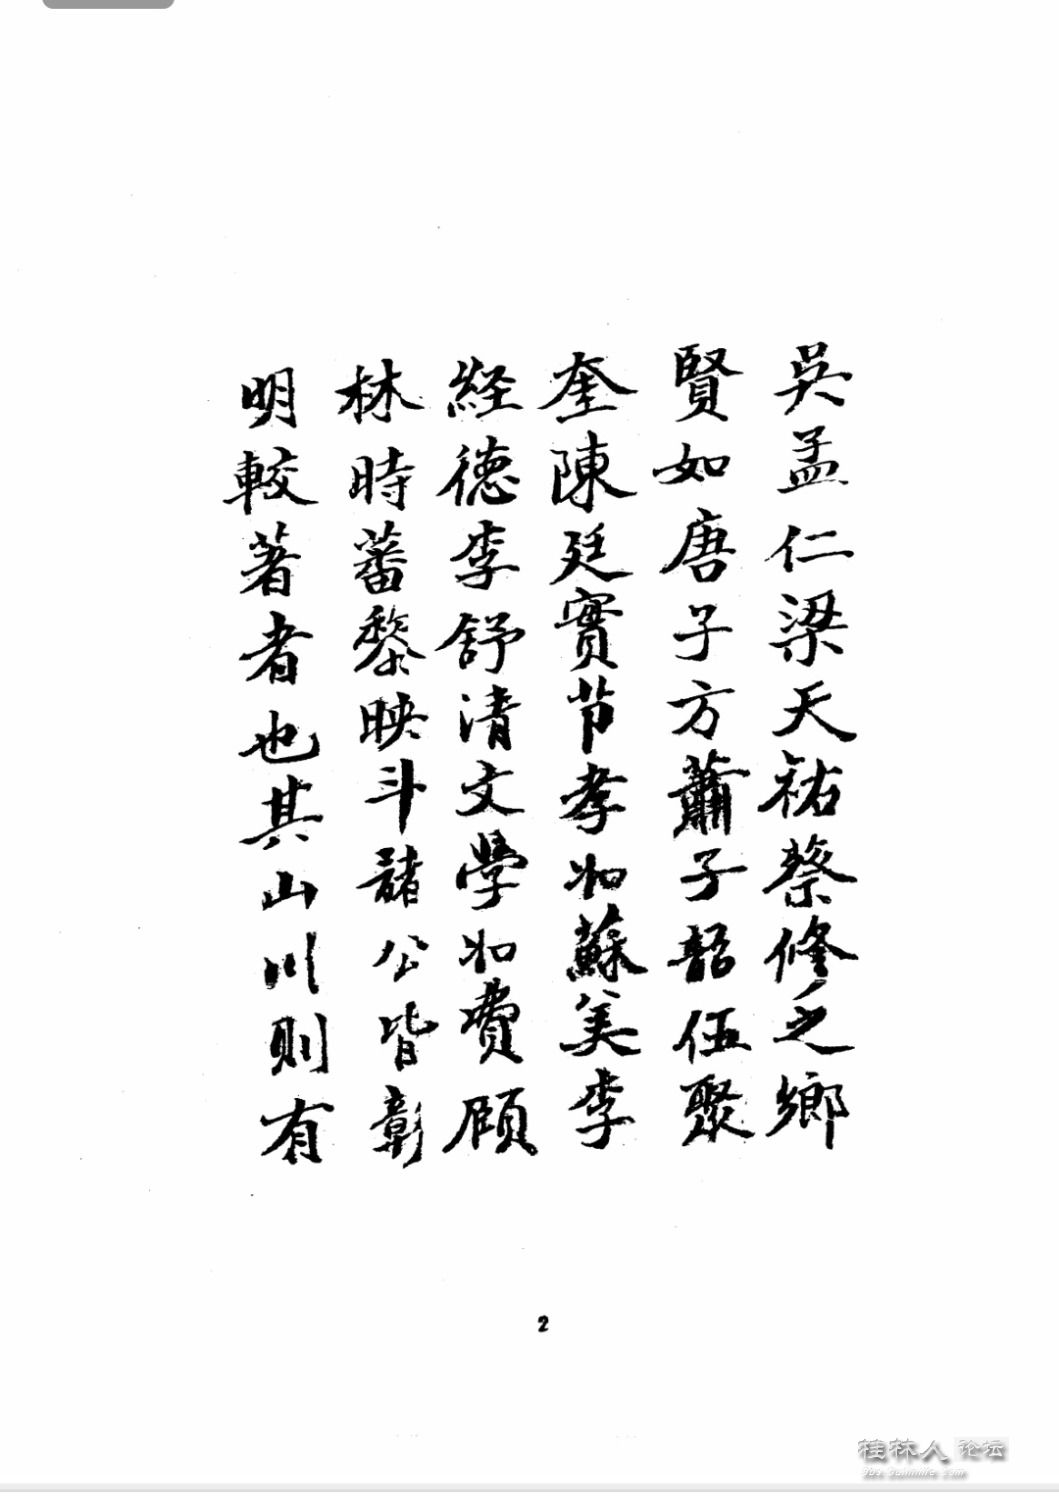 吳孟仁梁天祐蔡修之鄉
賢如唐子方蕭子韶伍聚
奎陳廷實节孝如蘇美李
経德李舒清文學如費顧
林時蕃黎映斗諸公皆彰
明較著者也其山川則有
2
桂林人论坛